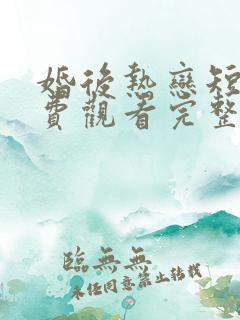 婚後熱戀短
費觀看完整
臨無無
未经同意禁止转载